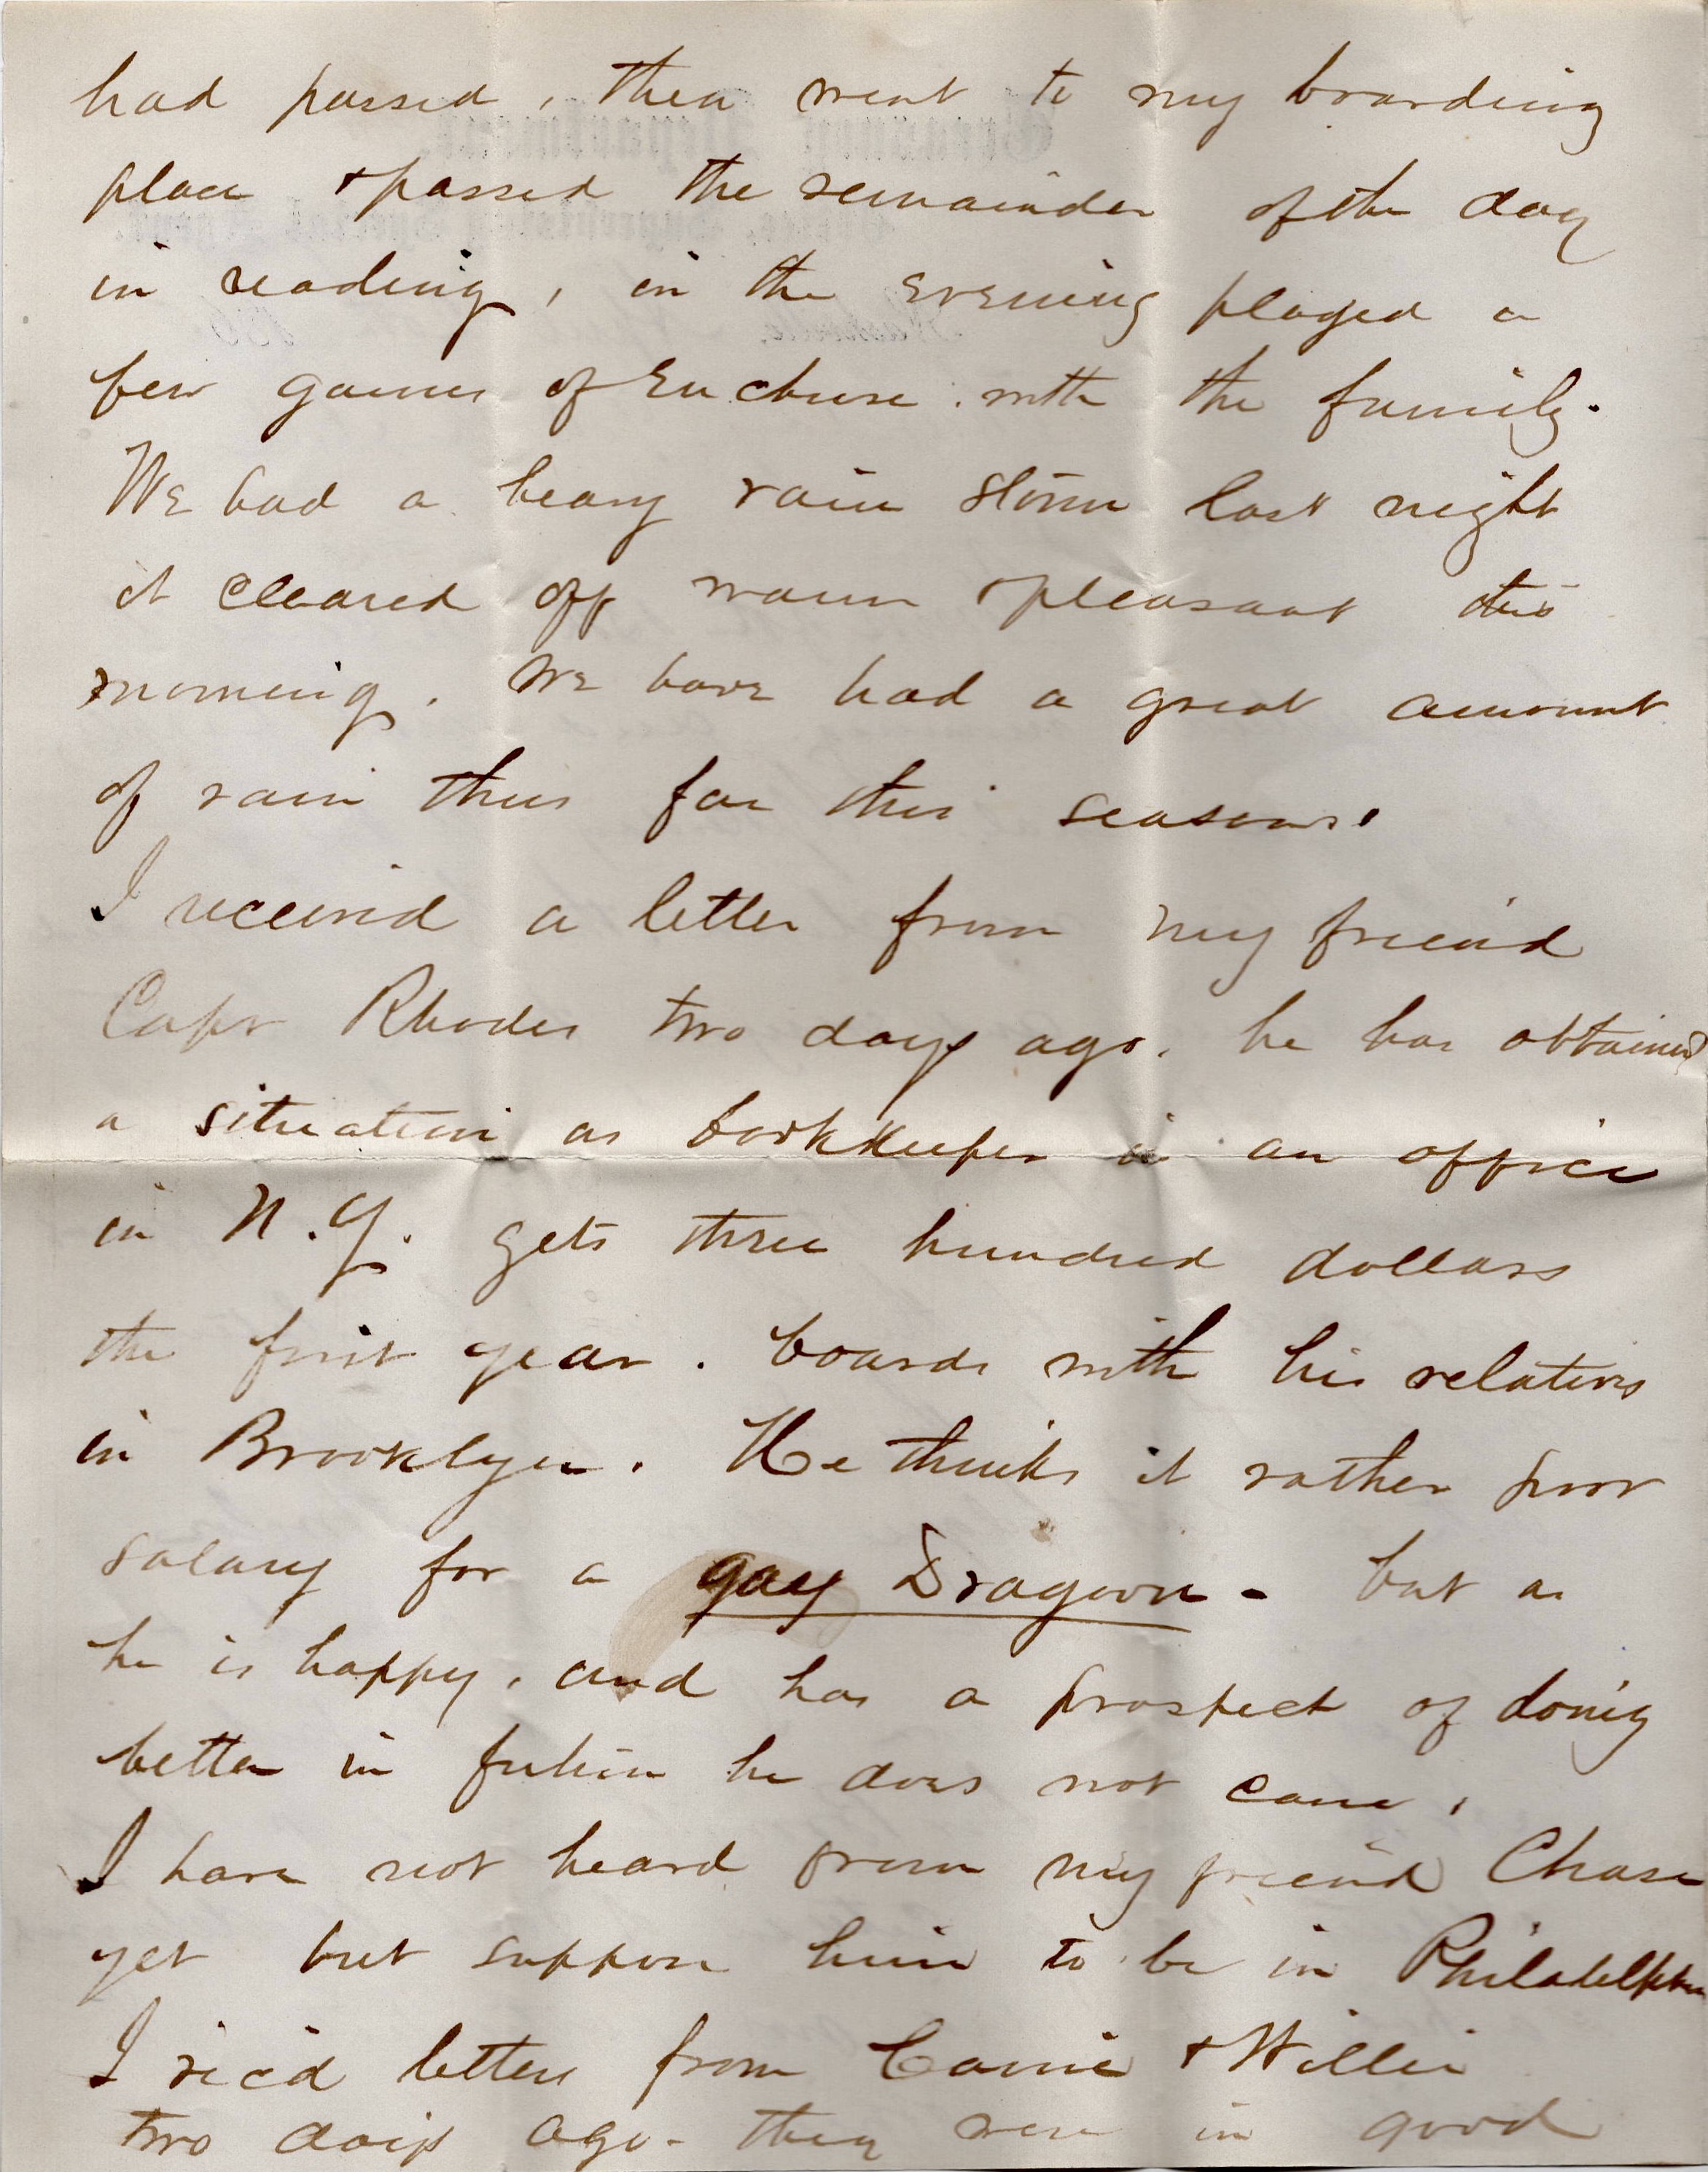 had passed, then went to my boarding
place & passed the remainder of the day
in reading, in the evening played a
few games of Euchure with the family.
We had a heavy rain storm last night
it cleared off warm & pleasant this
morning. We have had a great amount
of rain thus far this season.
I received a letter from my friend
Capt Rhodes two days ago. he has obtained
a situation as bookkeeper in an office
in N.Y. gets three hundred dollars
the first year. boards with his relatives
in Brooklyn. He thinks it rather poor
salary for a gay Dragoon - but as
he is happy, and has a prospect of doing
better in future he does not care,
I have not heard from my friend Chase
yet but suppose him to be in Philadelphia
I rec'd letters from Carrie & Willie
two days ago - they were in good